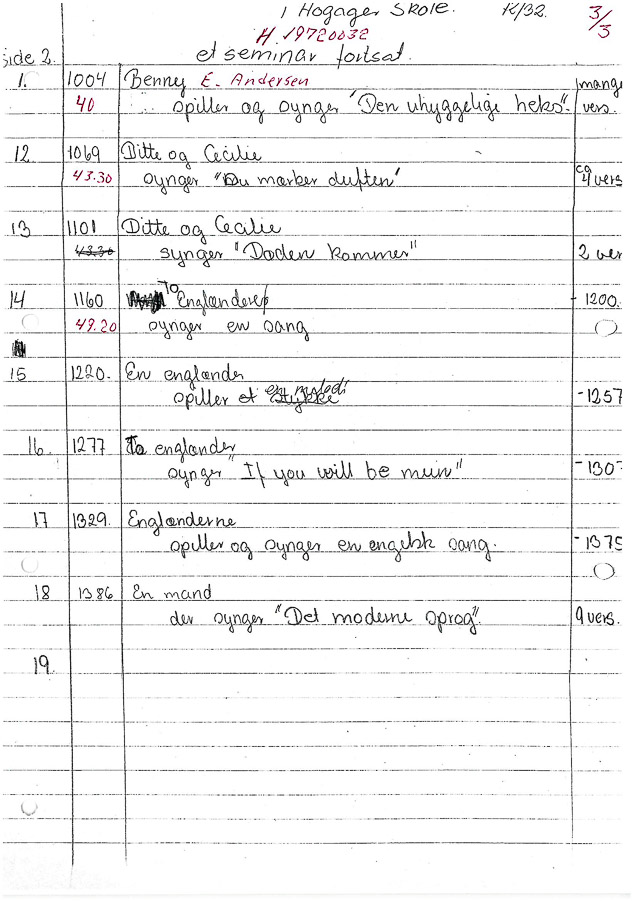 i Hogager Skole. K/32. 3/3
H. 19720032
side 2. et seminar fortsat.
1. 1004 Benny E. Andersen mange
40 spiller og synger "Den uhyggelige heks". vers.
12 1069 Ditte og Cecilie
43.30 synger "Du mærker duften" ca 4 vers
13 1101 Ditte og Cecilie
43.30 synger "Døden kommer" 2 ver
14 1160 To Englænder - 1200.
49.20 synger en sang
15 1220. En englænder
spiller et en melodi - 1257
16. 1277 To englænder
synger "If you will be mein" - 130
17 1329. Englænderne
spiller og synger en engelsk sang. - 1375
18 1386 En mand
der synger "Det moderne sprog". 9 vers.
19.